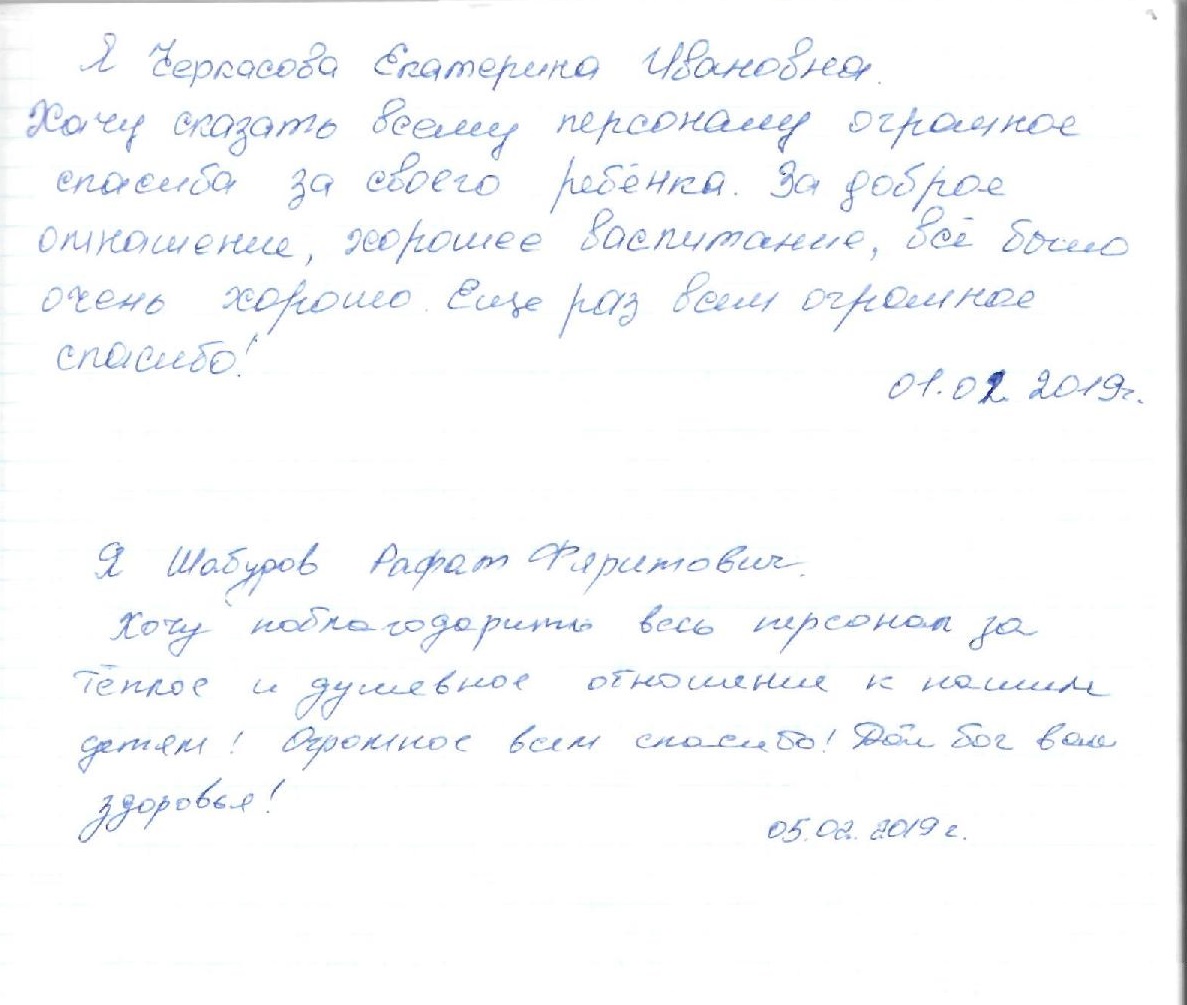 Я Черкасова Екатерина Ивановна.
Хачу сказать всему персоналу огромное
спасиба за своего ребёнка. За доброе
отнашение, хорошее васпитание, всё было
очень хорошо. Еще раз всем огромное
спасибо!
01.02. 2019г.
Я Шабуров Рафат Фяритович.
Хочу поблагодарить весь персонал за
тёплое и душевное отношение к нашим
детям! Огромное всем спасибо! Дай бог вам
здоровья!
05.02. 2019 г.